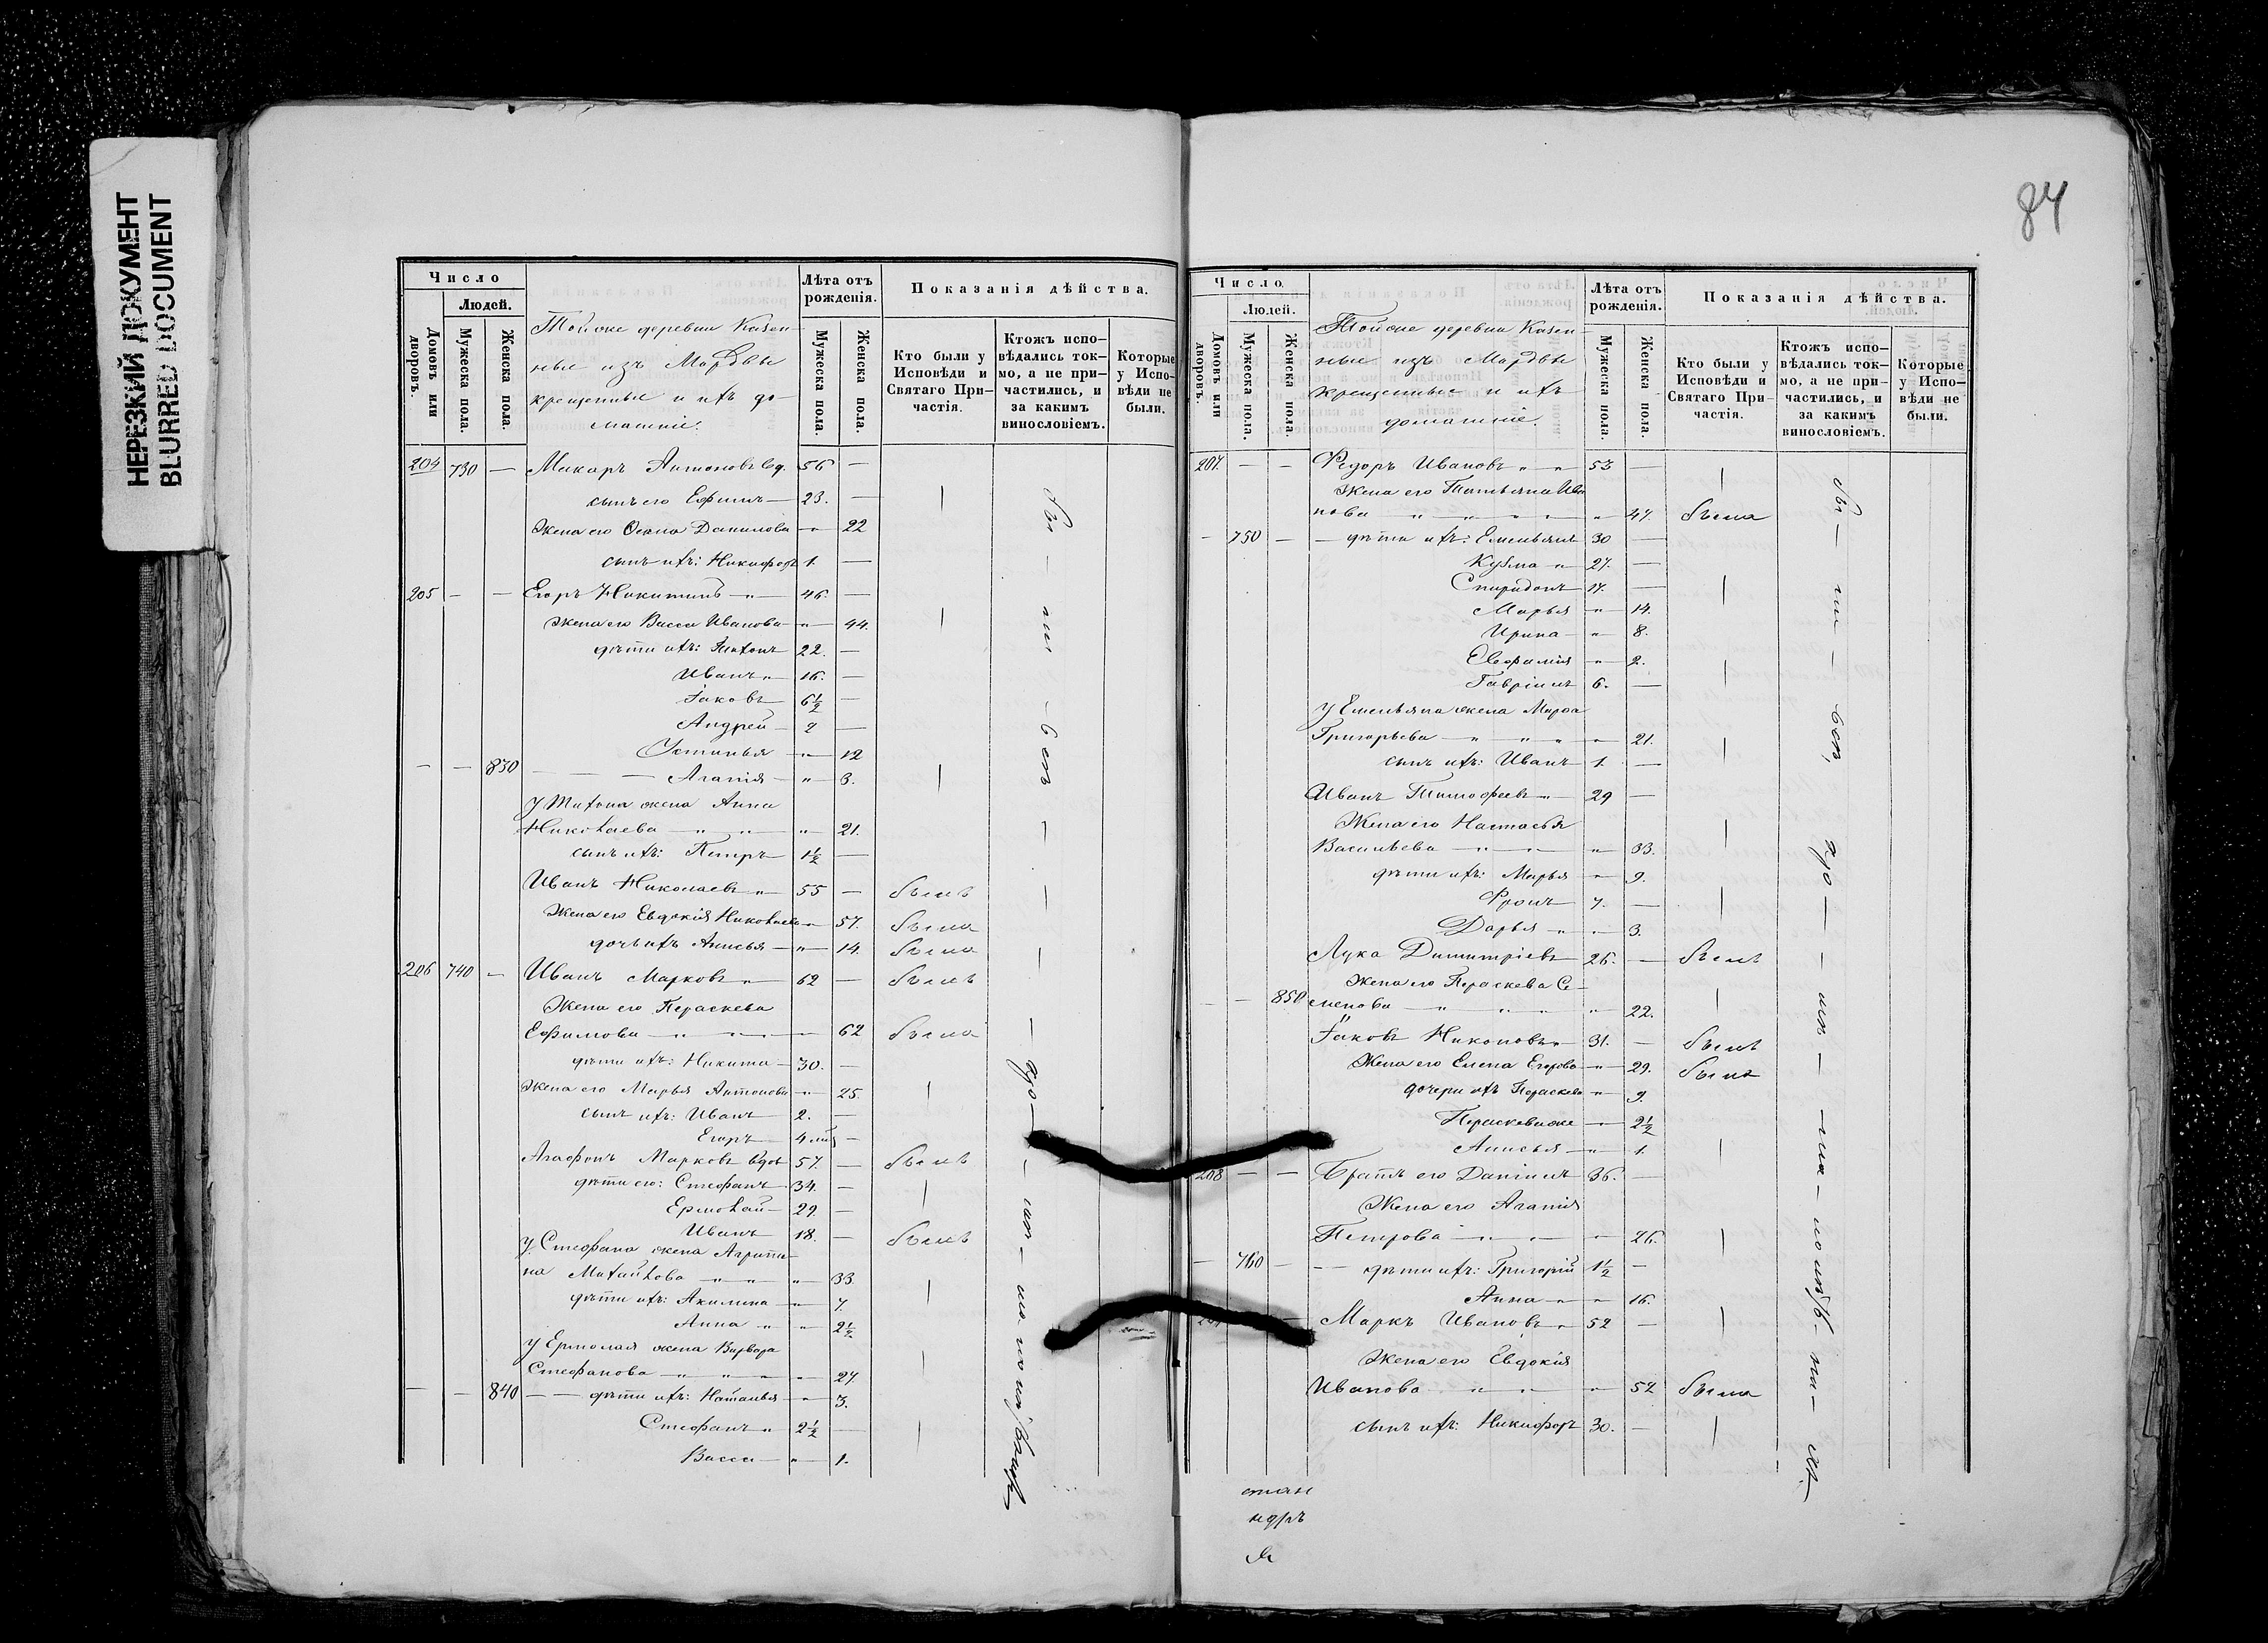 НЕРЕЗКИЙ ДОКУМЕНТ
BLURRED DOCUMENT
84
Число
Людей.
Домовъ или дворовъ.
Мужеска пола.
Женска пола.
Тойже деревни Казен-
ные изъ Мордвы
крещенные и ихъ до-
машніе.
Лѣта отъ рожденія.
Мужеска пола.
Женска пола.
Показанія дѣйства.
Кто были у Исповѣди и Святаго При-частія.
Ктожъ испо-вѣдались ток-мо, а не при-частились, и за какимъ винословіемъ.
Которые у Испо-вѣди не были.
204 730 — Макаръ Антоновъ вд. 56 —
сынъ его Ефимъ — 23. —
Жена его Данилова — „ 22
сынъ ихъ: Никифоръ 1. —
205 — — Егоръ Никитинъ „ 46. —
Жена его Васса Иванова — „ 44.
дѣти ихъ: Тихонъ 22. —
Иванъ „ 16. —
Іаковъ 6½ —
Андрей — 2 —
Устинья — „ 12
— — 830 — — — Агапія — „ 3.
У Тихона жена Анна
Николаева — „ „ „ 21.
сынъ ихъ: Петръ 1½ —
Иванъ Николаевъ „ 55 — былъ
Жена его Евдокія Николаева „ 57. была
дочь ихъ Анисья — „ 14. была
206 740 — Иванъ Марковъ „ 62 — былъ
Жена его Параскева
Ефимова — „ „ — 62 была
дѣти ихъ: Никита — 30. —
Жена его Марья Антонова „ 25.
сынъ ихъ: Иванъ 2. —
Егоръ 4 —
Агафонъ Марковъ вдов 57. — былъ
дѣти его: Стефанъ 34. —
Ермолай — 29. —
Иванъ 18. — былъ
у Стефана жена Агрипи-
на Михайлова — „ „ „ 33.
дѣти ихъ: Акилина — „ 7.
Анна „ „ 2½
у Ермолая жена Варвара
Стефанова — „ „ „ „ 27
— — 840 — — дѣти ихъ: Наталья — „ 3.
Стефанъ „ 2½ —
Васса — „ 1.
Число
Людей.
Домовъ или дворовъ.
Мужеска пола.
Женска пола.
Тойже деревни Казен-
ные изъ Мордвы
крещенные и ихъ
домашніе.
Лѣта отъ рожденія.
Мужеска пола.
Женска пола.
Показанія дѣйства.
Кто были у Исповѣди и Святаго При-частія.
Ктожъ испо-вѣдались ток-мо, а не при-частились, и за какимъ винословіемъ.
Которые у Испо-вѣди не были.
207. — — Ѳедоръ Ивановъ „ „ 53 —
Жена его Татьяна Ива
нова „ „ „ „ „ 47. была
— 750 — — дѣти ихъ: Емельянъ 30 —
Кузма „ 27. —
Спиридонъ 17. —
Марья „ 14.
Ирина — „ 8.
Евфимія „ 2.
Гавріилъ 6. —
у Емельяна жена Марфа
Григорьева — „ „ „ „ 21.
сынъ ихъ: Иванъ 1. —
Иванъ Тимофеевъ „ 29 —
Жена его Настасья
Васильева — „ „ „ 33.
дѣти ихъ: Марья — „ 9.
Фролъ 7. —
Дарья „ „ 3.
Лука Димитріевъ 26. — былъ
Жена его Параскева Се-
— — 850 менова — „ „ „ „ 22.
Іаковъ Никоновъ „ 31. — былъ
Жена его Елена Егорова „ 29. была
дочери ихъ Параскева „ 9.
Параскева же — „ 2½
Анисья — „ 1.
208 — — Братъ его Даніилъ 36. —
Жена его Агапія
Петрова — „ „ „ 26.
— 760 — — дѣти ихъ: Григорій 1½ —
Анна — „ „ 16.
Маркъ Ивановъ „ 52 —
Жена его Евдокія
Иванова „ „ „ 52 была
сынъ ихъ: Никифоръ 30. —